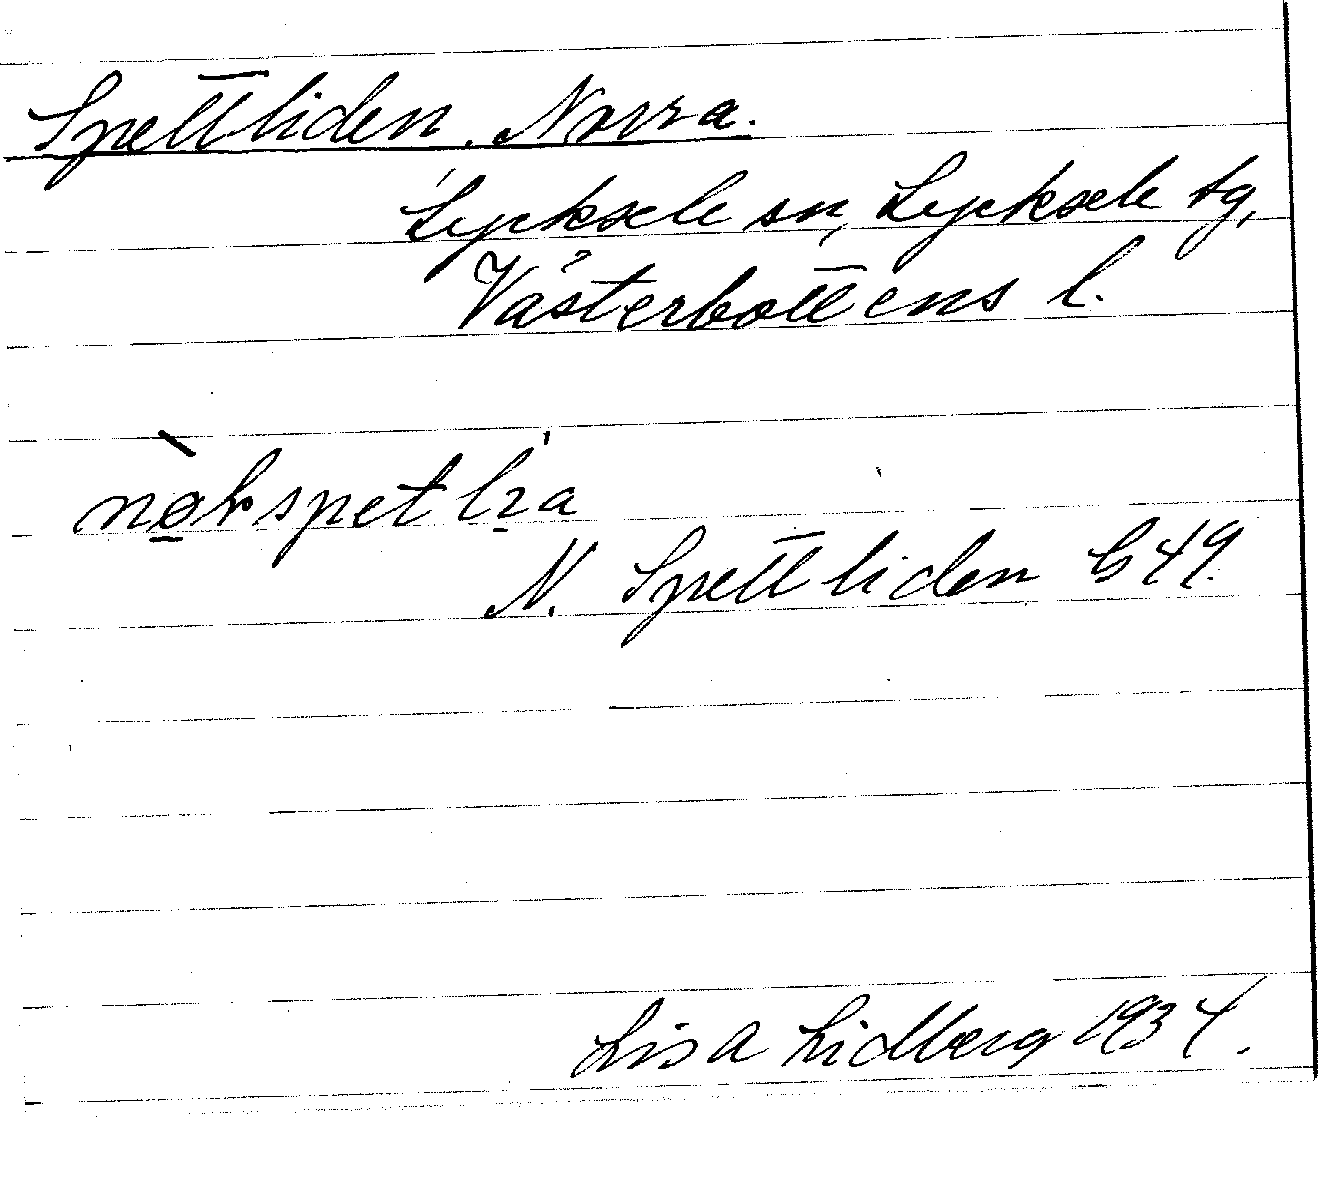 Spettliden, Norra.
Lycksele sn, Lycksele tg,
Västerbottens l.
N. Spettliden G49.
Lisa Lidberg 1934.